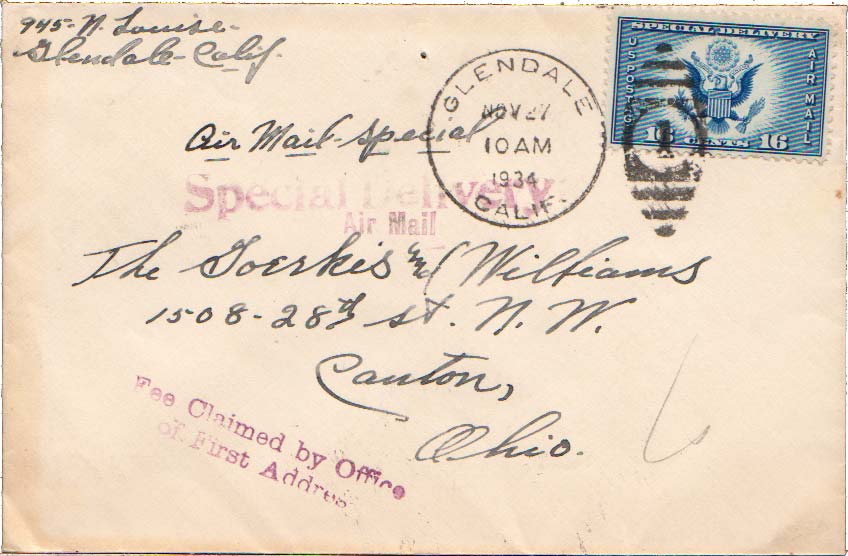 945-N. Louise-
Glendale-Calif.
SPECIAL DELIVERY
U.S. POSTAGE
AIR MAIL
16 CENTS 16
GLENDALE
NOV 27
10 AM
1934
CALIF.
1
Air Mail-Special
Special Delivery
Air Mail
The Goerkis and Williams
1508-28th St. N. W.
Canton,
Ohio.
Fee Claimed by Office
of First Address